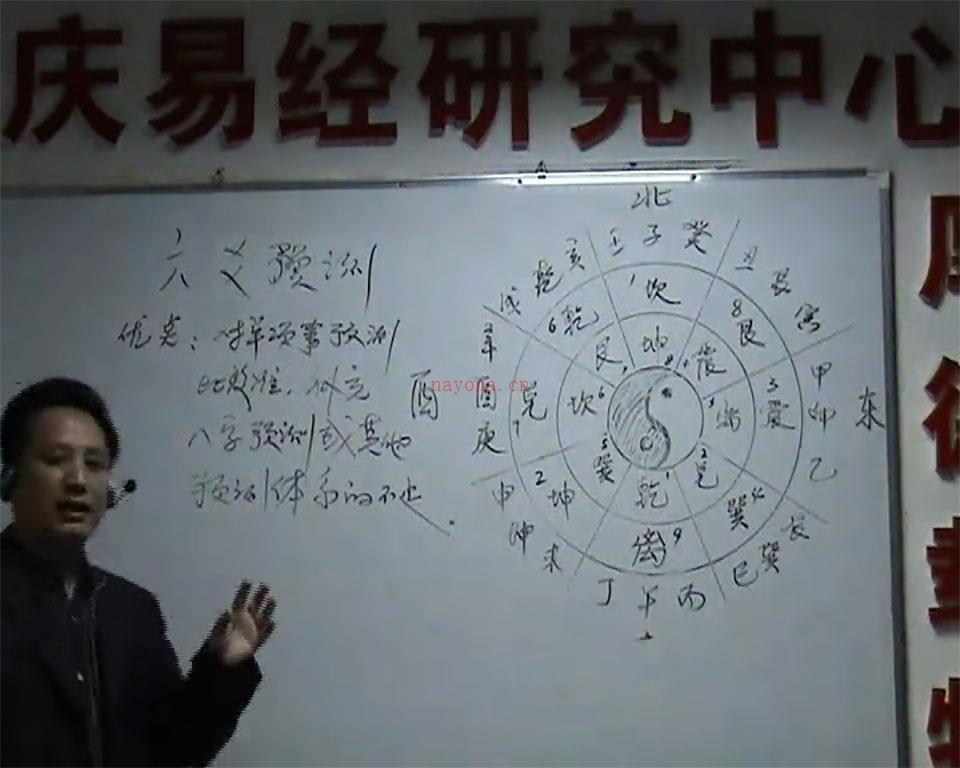 庆易经研究中心
六爻预测
优点：对单项事预测
比较准，补充
八字预测或其他
预测体系的不足.
nayona.cn
北
壬 子 癸
丑 艮 寅
甲 卯 乙
东
辰 巽 巳
丙 午 丁
未 坤 申
庚 酉 辛
酉
戌 乾 亥
1 坎
8 艮
3 震
4 巽
9 离
2 坤
7 兑
6 乾
坤 8
震 4
离 3
兑 2
乾 1
5 巽
坎 6
艮 7